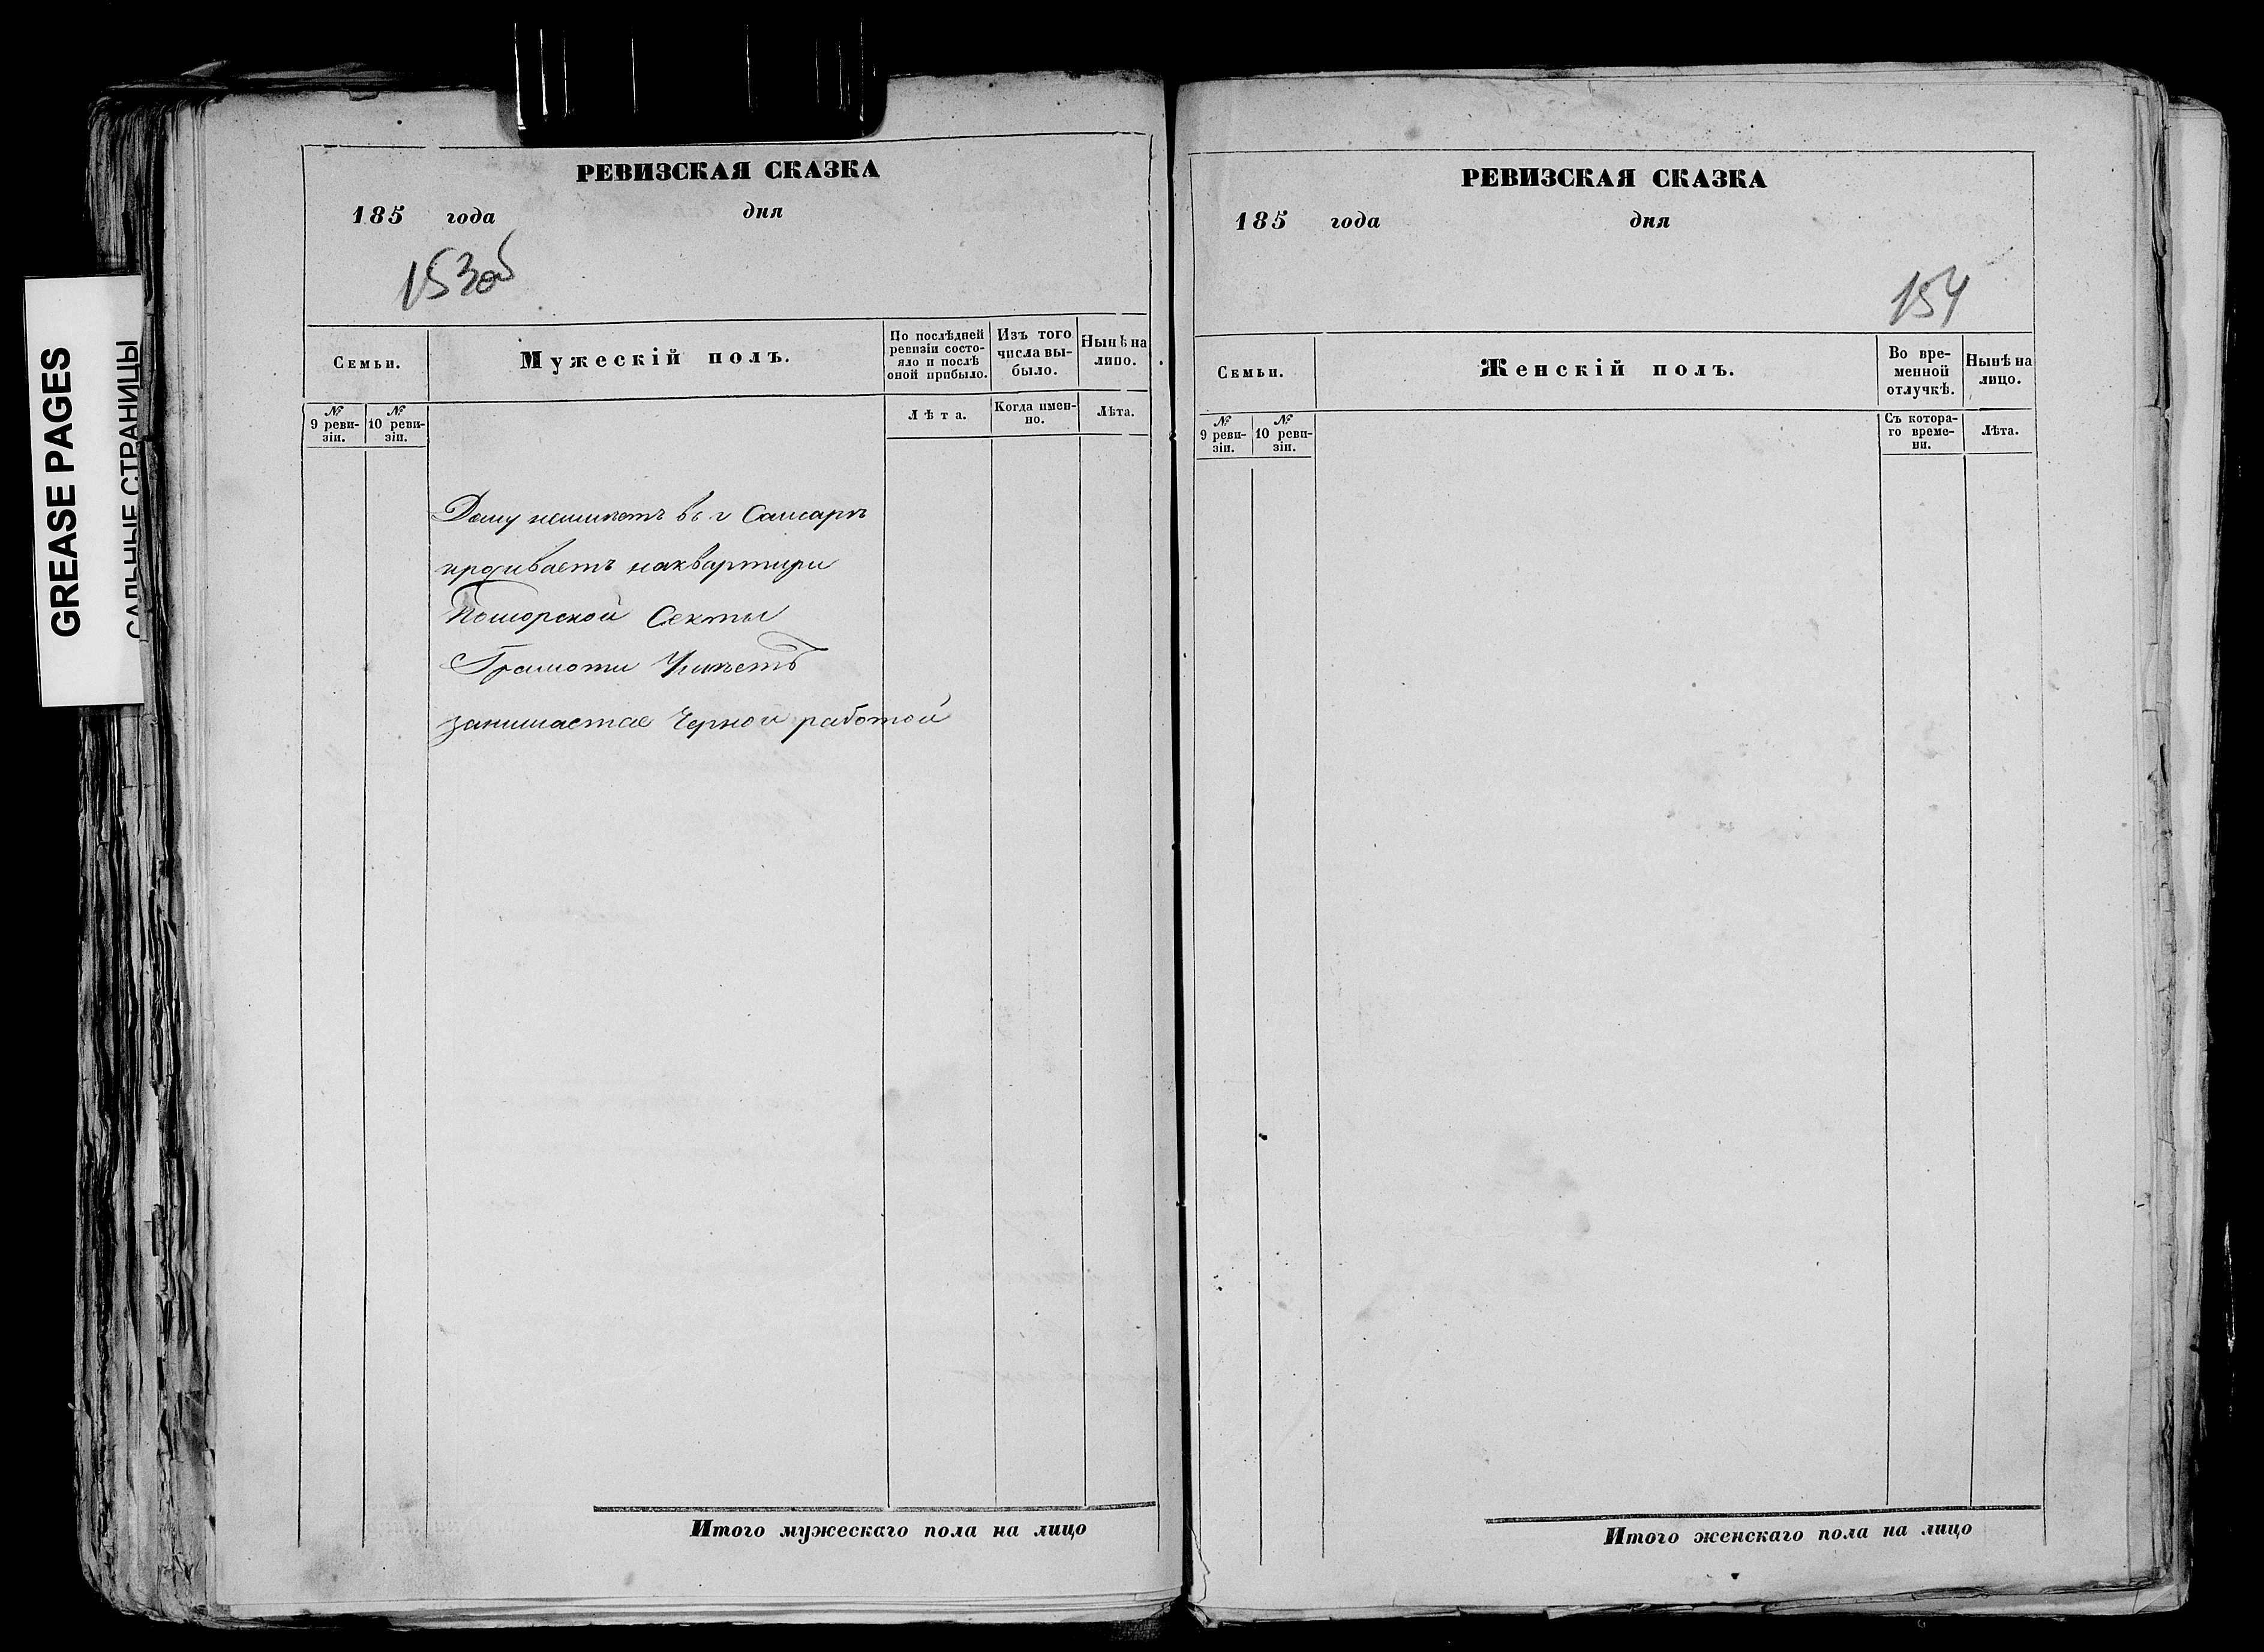 GREASE PAGES
САЛЬНЫЕ СТРАНИЦЫ
РЕВИЗСКАЯ СКАЗКА
185 года дня
153об
Семьи.
Мужескій полъ.
По послѣдней ревизіи состо-
яло и послѣ оной прибыло.
Изъ того числа вы-
было.
Нынѣ на лицо.
№ 9 реви-
зіи.
№ 10 реви-
зіи.
Лѣта.
Когда имен-
но.
Лѣта.
Дому неимѣетъ въ г Самарѣ
проживаетъ наквартири
Поморской Секты
Грамоти Умѣетъ
занимается Черной работой
Итого мужескаго пола на лицо
РЕВИЗСКАЯ СКАЗКА
185 года дня
154
Семьи.
Женскій полъ.
Во вре-
менной
отлучкѣ.
Нынѣ на
лицо.
№ 9 реви-
зіи.
№ 10 реви-
зіи.
Съ котора-
го време-
ни.
Лѣта.
Итого женскаго пола на лицо